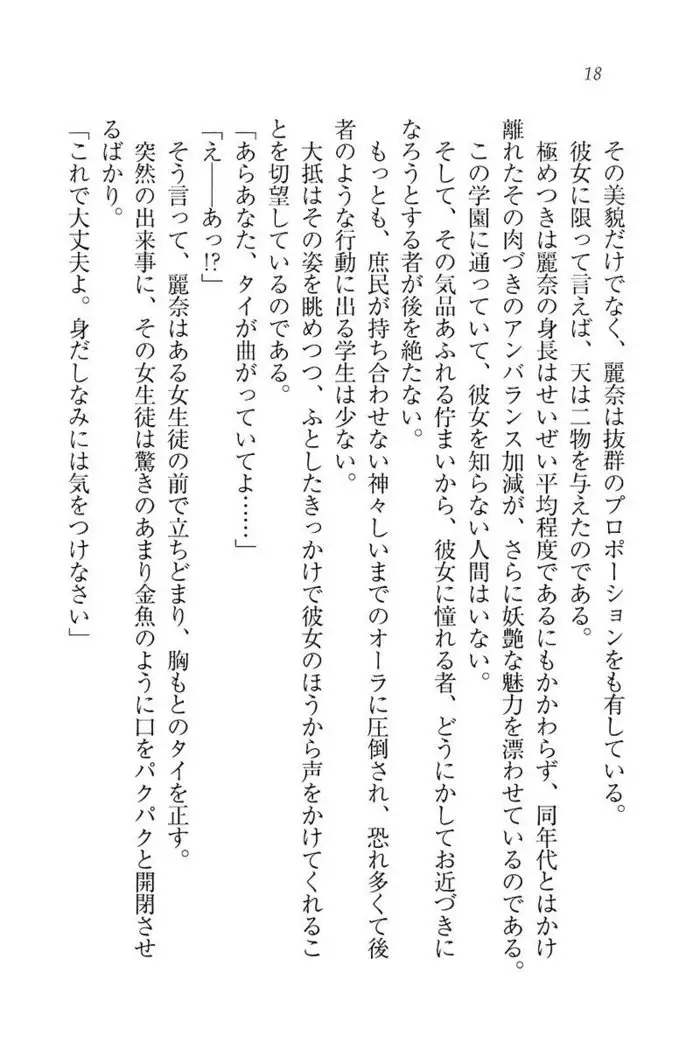 18
その美貌だけでなく、麗奈は抜群のプロポーションをも有している。
彼女に限って言えば、天は二物を与えたのである。
極めつきは麗奈の身長はせいぜい平均程度であるにもかかわらず、同年代とはかけ
離れたその肉づきのアンバランス加減が、さらに妖艶な魅力を漂わせているのである。
この学園に通っていて、彼女を知らない人間はいない。
そして、その気品あふれる佇まいから、彼女に憧れる者、どうにかしてお近づきに
なろうとする者が後を絶たない。
もっとも、庶民が持ち合わせない神々しいまでのオーラに圧倒され、恐れ多くて後
者のような行動に出る学生は少ない。
大抵はその姿を眺めつつ、ふとしたきっかけで彼女のほうから声をかけてくれるこ
とを切望しているのである。
「あらあなた、タイが曲がっていてよ……」
「え――あっ!?」
そう言って、麗奈はある女生徒の前で立ちどまり、胸もとのタイを正す。
突然の出来事に、その女生徒は驚きのあまり金魚のように口をパクパクと開閉させ
るばかり。
「これで大丈夫よ。身だしなみには気をつけなさい」